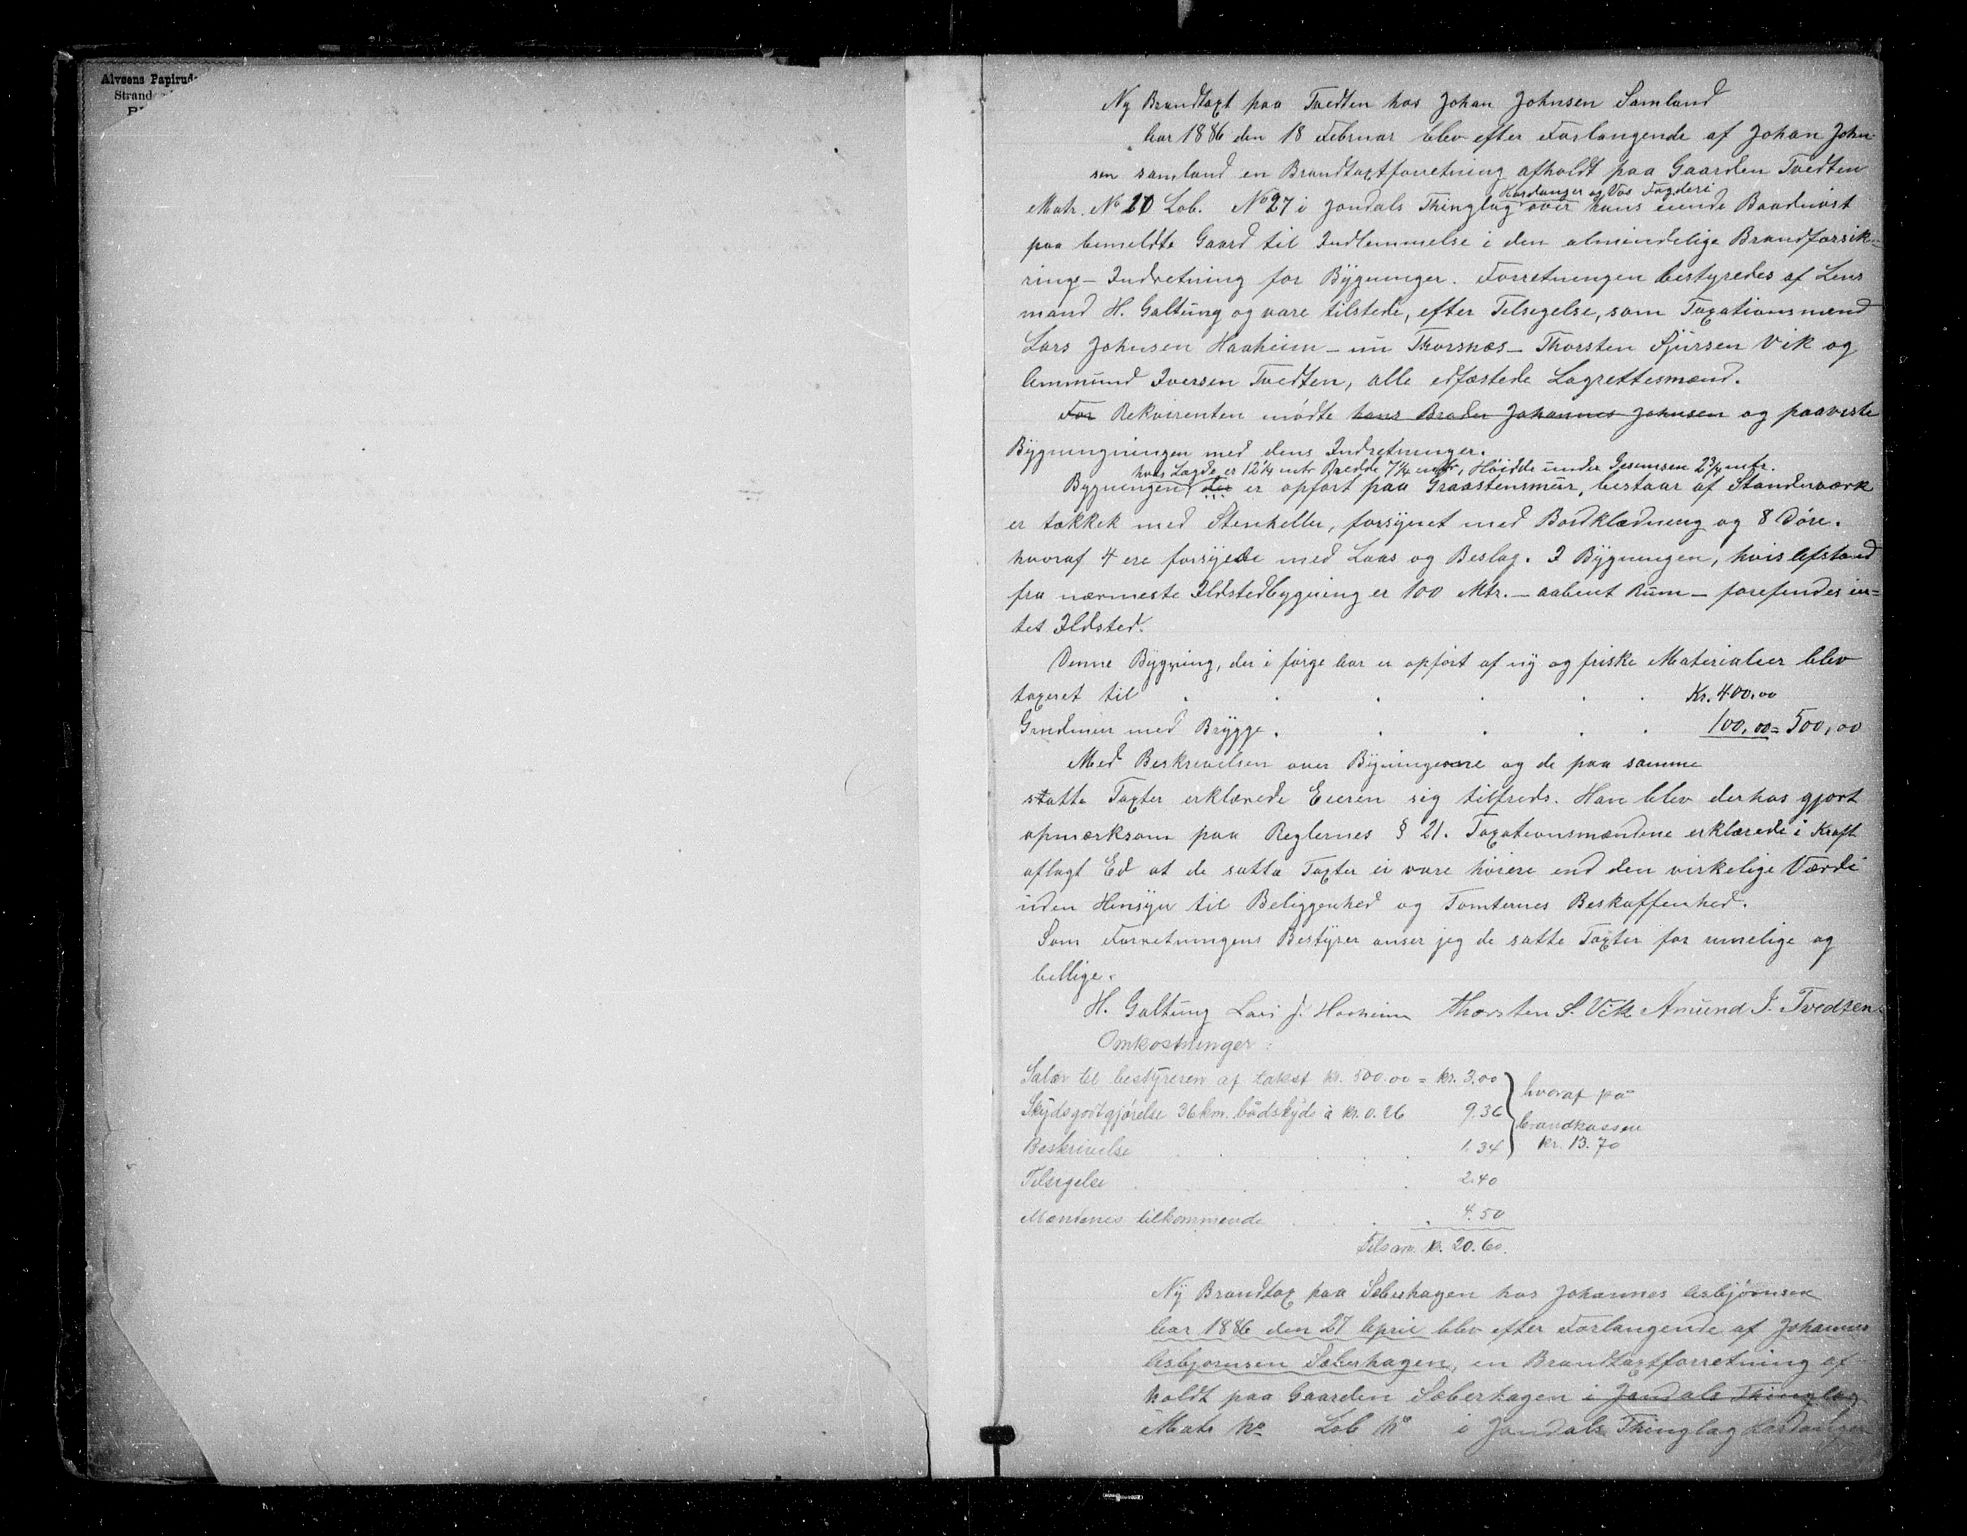 Alvøens Papirud
Strand
Ny Brandtaxt paa Tvedten hos Johan Johnsen Samland
Aar 1886 den 18 Februar blev efter Forlangende af Johan John-
sen samland en Brandtaxtforretning afholdt paa Gaarden Tvedten
Hardanger og Vos Fogderi
Matr. No 20 Løb. No 27 i Jondals Thinglag over hans eiende Baadnøst
paa bemeldte Gaard til Indlemmelse i den almindelige Brandforsik-
rings-Indretning for Bygninger. Forretningen bestyredes af Lens
mand H. Galtung og vare tilstede, efter Tilsigelse, som Taxationsmænd
Lars Johnsen Haaheim - nu Thorsnæs - Thorsten Sjursen Vik og
Ammund Iversen Tvedten, alle edfæstede Lagrettesmænd.
For Rekvirenten mødte hans Broder Johannes Johnsen og paaviste
Bygningningen med dens Indretninger.
hvis Lægde er 12¼ mtr Bredde 7¼ mtr, Høidde under Gesimsen 2¾ mtr.
Bygningen der er opført paa Graastensmur, bestaar af Standerværk
er tækkek med Stenheller, forsynet med Bordklædning og 8 Døre.
hvoraf 4 ere forsyede med Laas og Beslag. I Bygningen, hvis Afstand
fra nærmeste Ildstedbygning er 100 Mtr. - aabent Rum - forefindes in-
tet Ildsted.
Denne Bygning, der i forge Aar er opført af ny og friske Materialier blev
taxeret til . . . . . Kr. 400,00
Grndmur med Brygge . . . . . 100,00 = 500,00
Med Beskrivelsen over Bygningerne og de paa samme
satte Taxter erklærede Eieren sig tilfreds. Han blev derhos gjort
opmærksom paa Reglernes § 21. Taxationsmændene erklærede i Kraft
aflagt Ed at de satte Taxter ei vare høiere end den virkelige Værdi
uden Hensyn til Beliggenhed og Tomternes Beskaffenhed.
Som Forretningens Bestyrer anser jeg de satte Taxter for rimelige og
billige.
H. Galtung Lars J. Haaheim Thorsten S. Vik Amund I. Tvedten
Omkostninger:
Salær til bestyreren af takst kr. 500.00 = kr. 3,00
Skydsgodtgjørelse 36 km. bådskyds à kr. 0.26 9.36
Beskrivelse . . . 1.34
hvoraf på
brandkassen
kr. 13.70
Tilsigelse . . . 2.40
Mændenes tilkommende . . . 4.50
Tilsam. kr. 20.60.
Ny Brandtax paa Sæberhagen hos Johannes Asbjørnsen
Aar 1886 den 27 April blev efter Forlangende af Johannes
Asbjørnsen Sæberhagen, en Brandtaxtforretning af
holdt paa Gaarden Sæberhagen i Jondals Thinglag
Matr No Løb No i Jondals Thinglag Hardanger